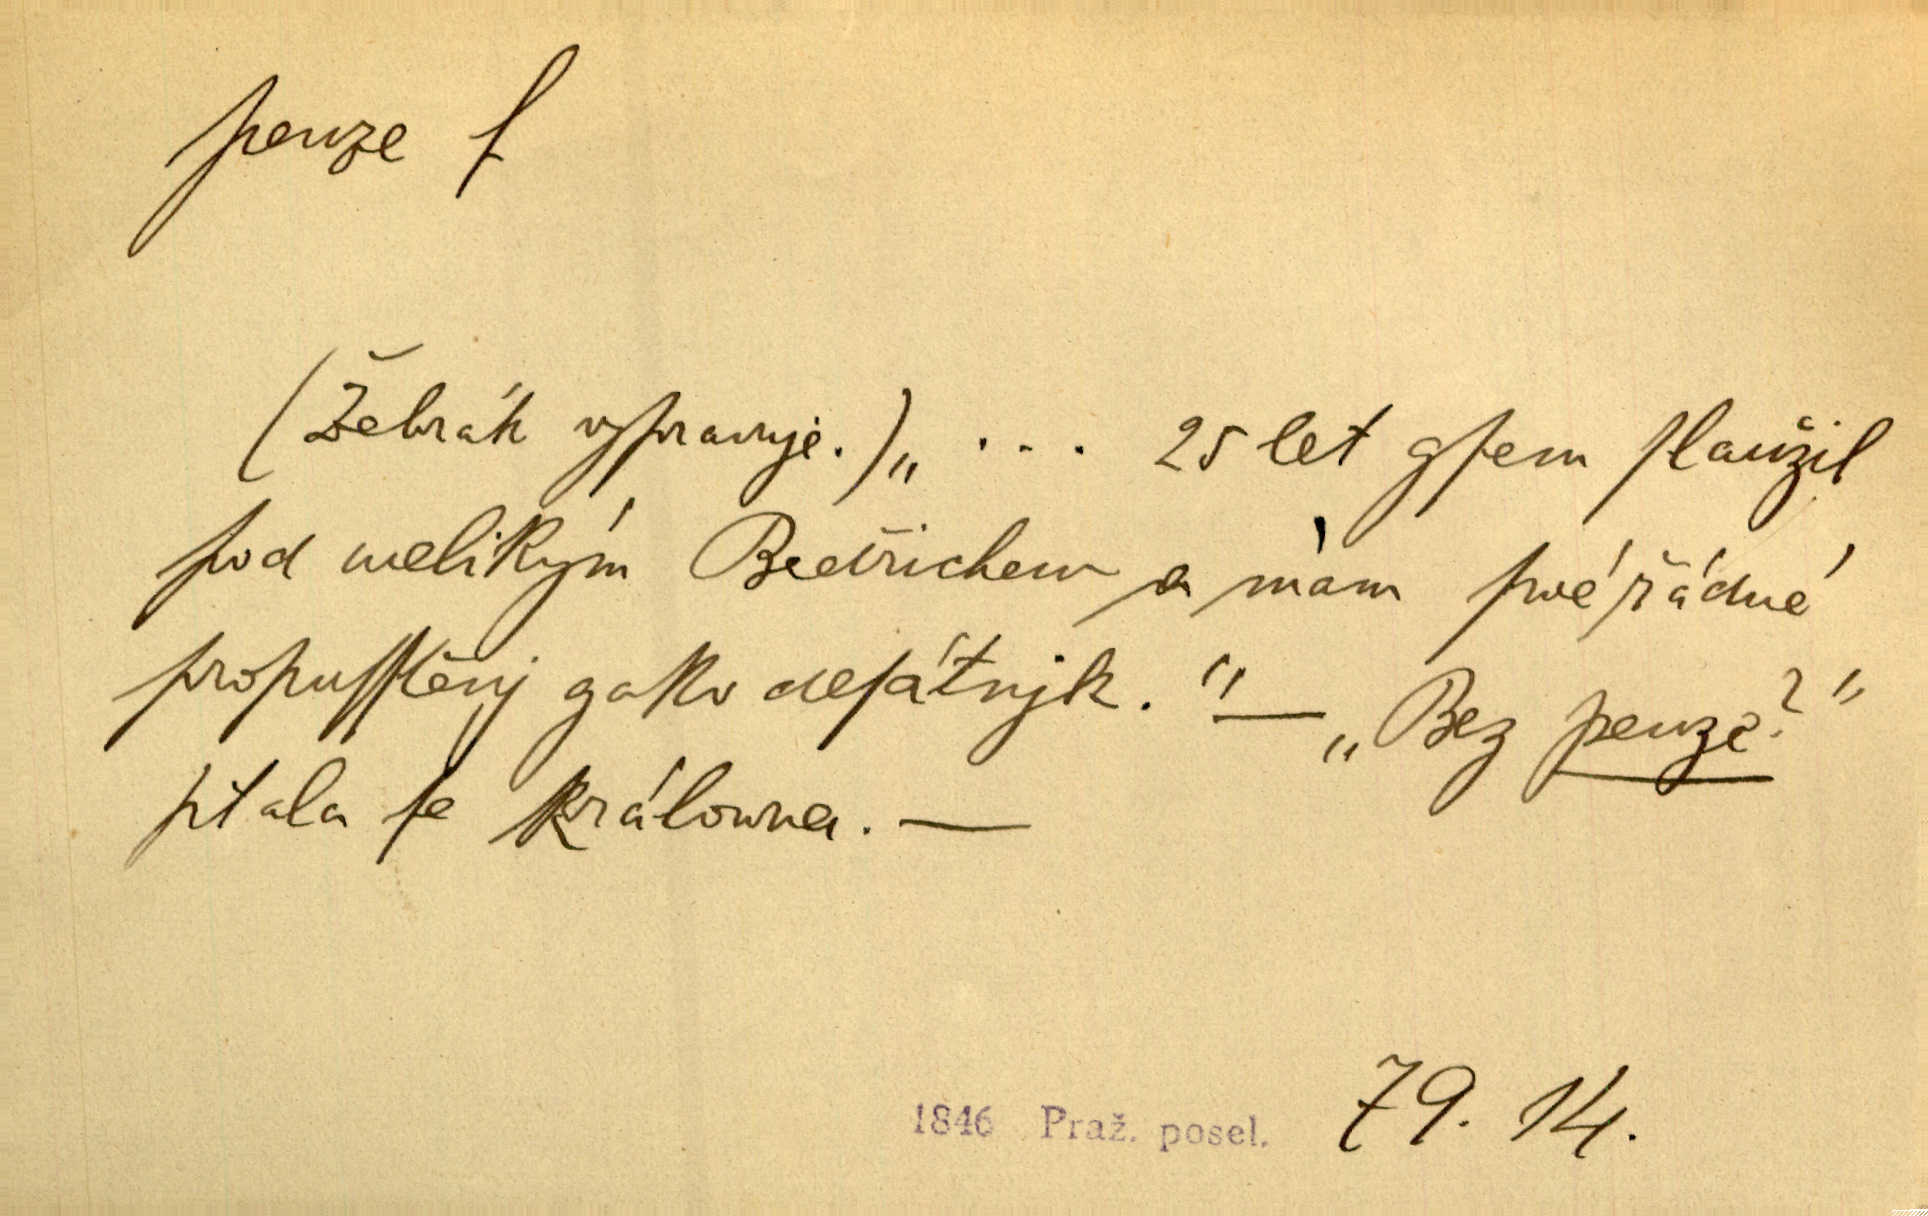 penze f
(Žebrák vypravuje.) „ . . . 25 let gsem slaužil
pod welikým Bedřichem a mám swé řádné
propusstěnj gako desátnjk." — „Bez penze?"
ptala se králowna. —
1846 Praž. posel. 79. 14.